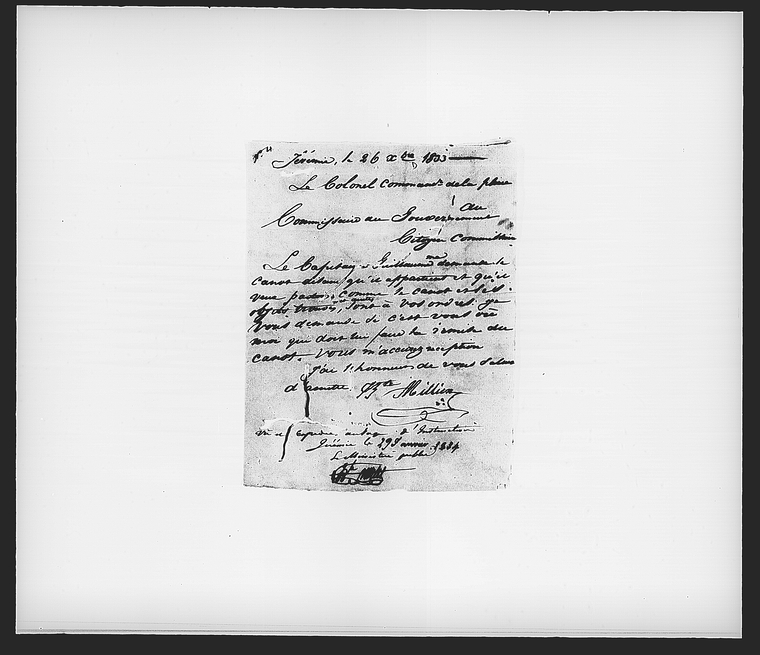 Jérémie, le 26 Xbre 1833
Le Colonel command. de la place
au
Commissaire au Gouvernement
Citoyen Commissaire
Le Capitaine Guillaume me demande le
canot disant qu'il appartient et qu'il
veut partir, comme le canot et ses
objets trouvés, sont à vos ordres. je
vous demande si c'est vous ou
moi qui doit lui faire la remise du
canot. Vous m'accusez réception
J'ai l'honneur de vous saluer
d'amitié. Millien
Vu et à d'Instruction
Jérémie le 29 Janvier 1834
Le Ministère public